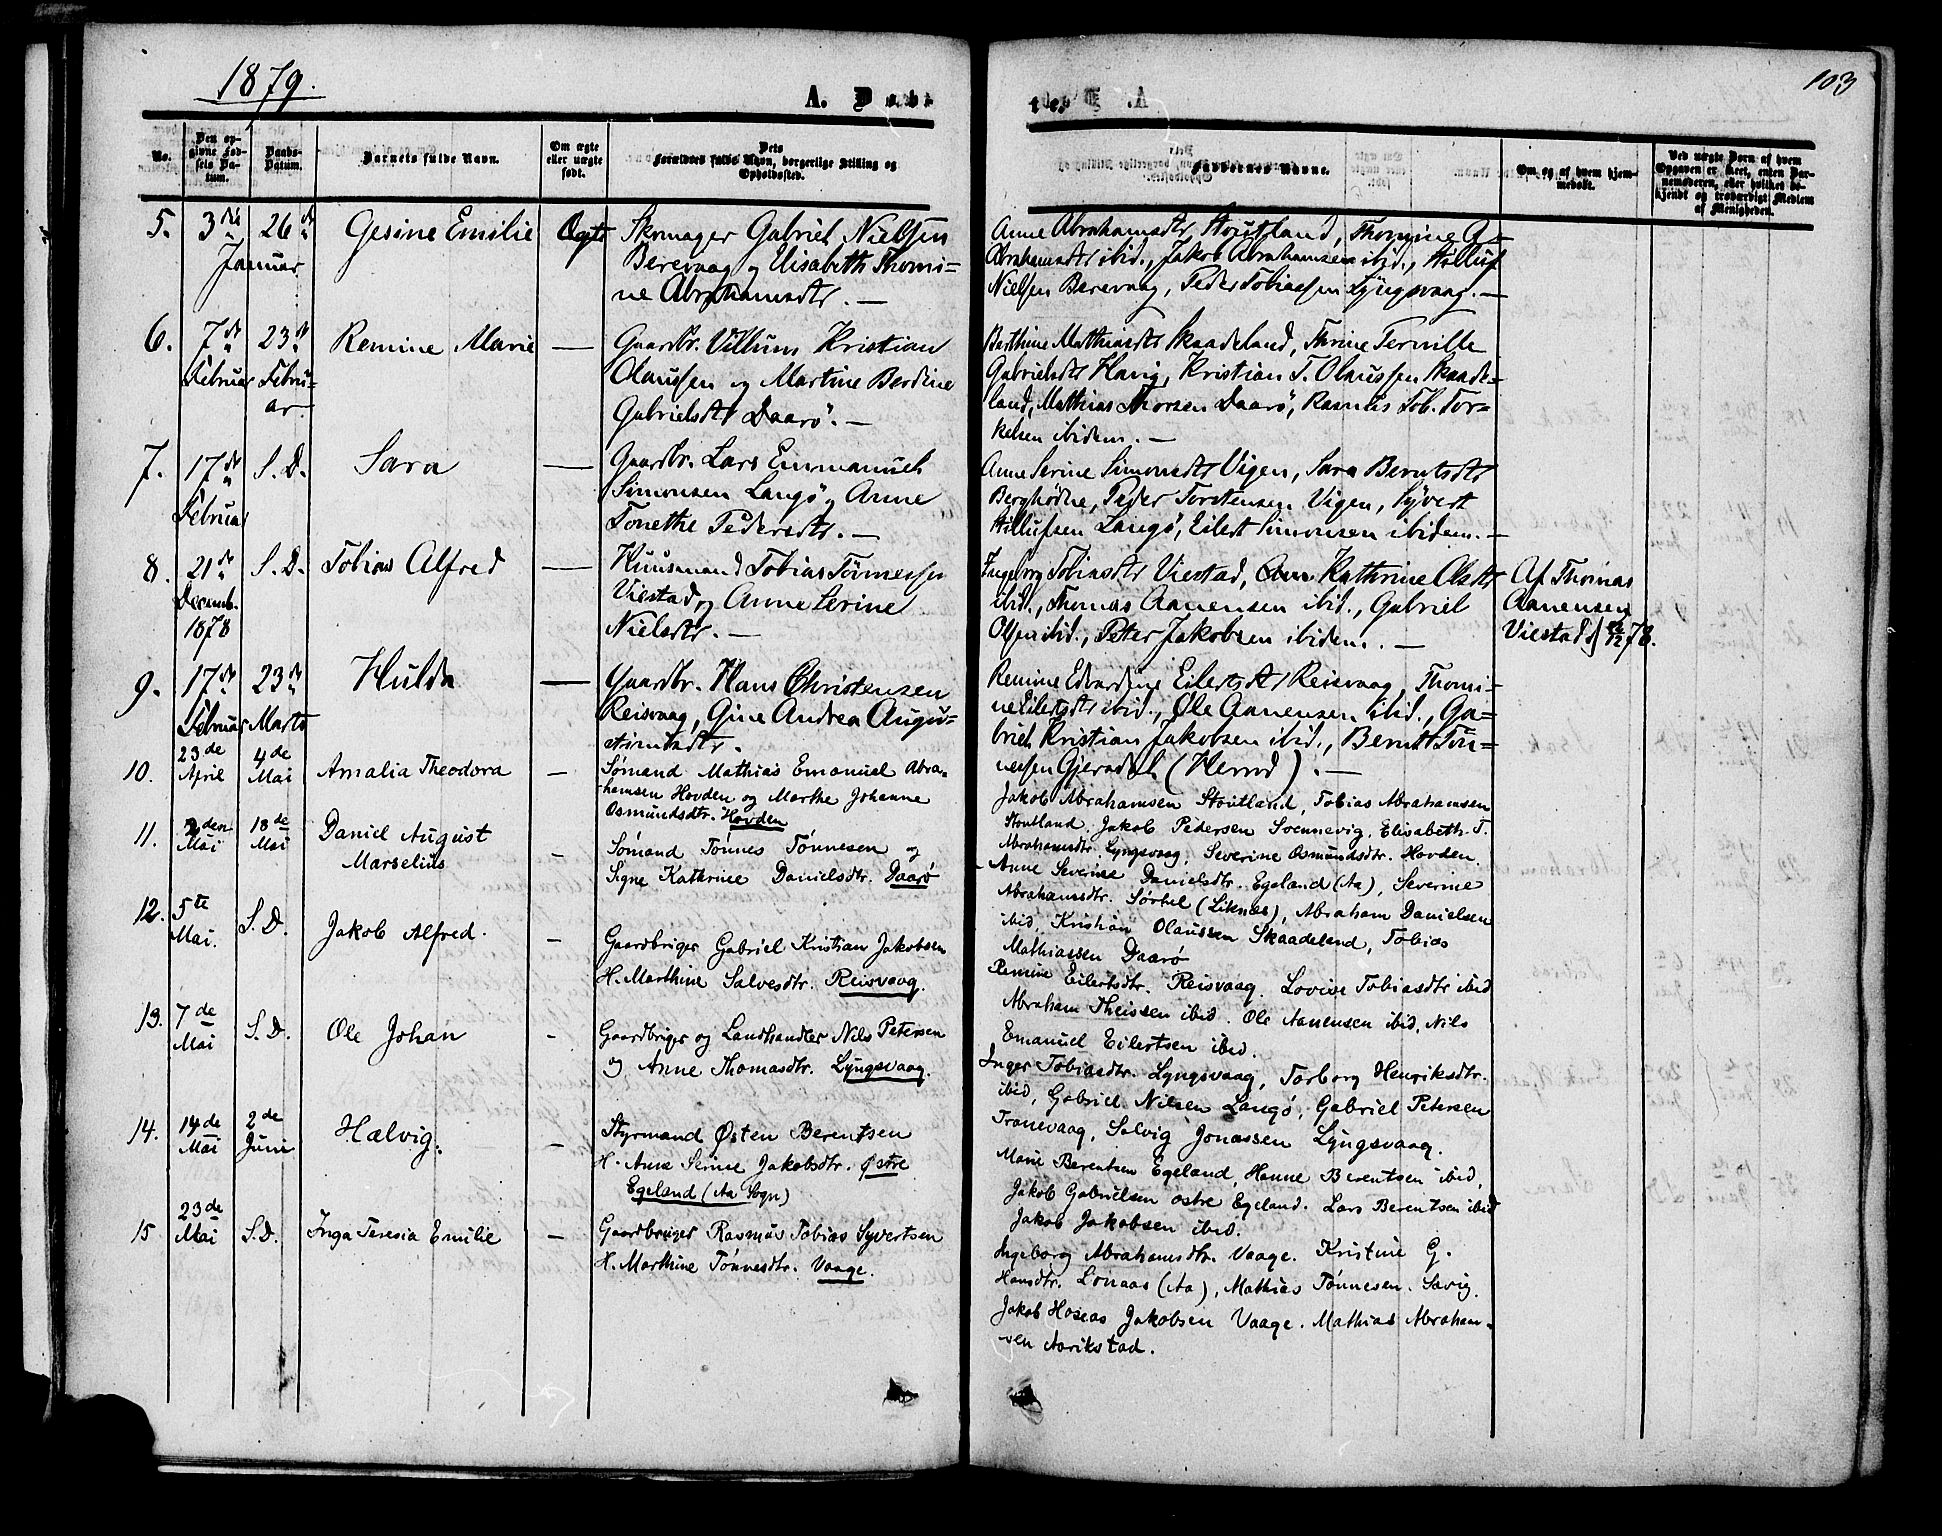 1879.
103
A. Døbte
No.
Den opgivne Fødsels Datum.
Daabs-Datum.
Barnets fulde Navn.
Om ægte eller uægte født.
Dets Forældres fulde Navn, borgerlige Stilling og Opholdssted.
Faddernes Navne.
Om og af hvem hjemmedøbt.
Ved uægte Børn af hvem Opgaven er skeet, enten Barnemoderen, eller hvilket bekjendt og troværdigt Medlem af Menigheden.
5. 3die Januar 26de Gesine Emilie Ægte
Skomager Gabriel Nielsen
Berevaag og Elisabeth Thomi-
ne Abrahamsdtr. —
Anne Abrahamsdtr Stoutland, Thomine G-
Abrahamsdtr ibid., Jakob Abrahamsen ibid.,
Nielsen Berevaag, Peder Tobiassen Lyngsvaag. —
6. 7de Februar 23de Februar Remine Marie —
Gaardbr. Villum Kristian
Olaussen og Martine Berdine
Gabrielsdtr Daarø. —
Berthine Mathiasdtr Skaadeland, Thrine Terville
Gabrielsdtr Havig, Kristian T. Olaussen Skaade-
land, Mathias Thorsen Daarø, Rasmus Tob. Tor-
kelsen ibidem. —
7. 17de Februar S. D. Sara —
Gaardbr. Lars Emmanuel
Simonsen Langø og Anne
Tonethe Pedersdtr. —
Anne Serine Simonsdtr Vigen, Sara Berntsdtr
Peder Torstensen Vigen, Syvert
Langø, Eilert Simonsen ibidem. —
8. 21de Decemb. 1878 S. D. Tobias Alfred —
Huusmand Tobias Tønnessen
Viestad og Anne Serine
Nielsdtr. —
Ingeborg Tobiasdtr Viestad, Kathrine Olsdtr
ibid., Thomas Aanensen ibid., Gabriel
Olsen ibid., Peter Jakobsen ibidem. —
Af Thomas
Aanensen
Viestad 78.
9. 17de Februar 23de Marts Hulda —
Gaardbr. Hans Christensen
Reisvaag, Gine Andrea Augu-
stinusdtr.
Remine Edvardine Eilertsdtr Reisvaag, Thomi-
ne Eilertsdtr ibid., Ole Aanensen ibid., Ga-
briel Kristian Jakobsen ibid., Bernt Tøn-
nessen Gjerdal (Herred). —
10. 23de April 4de Mai Amalia Theodora —
Sømand Mathias Emanuel Abra-
hamsen Hovden og Marthe Johanne
Osmundsdtr. Hovden
Jakob Abrahamsen Stoutland, Tobias Abrahamsen
Stoutland. Jakob Pedersen Soennevig, Elisabeth T.
Abrahamsdtr. Lyngsvaag, Severine Osmundsdtr. Hovden.
11. 2den Mai 18de Mai Daniel August
Marselius —
Sømand Tønnes Tønnesen og
Signe Kathrine Danielsdtr. Daarø
Anne Severine Danielsdtr. Egeland (Aa), Severine
Abrahamsdtr. Sørbel (Liknæs), Abraham Danielsen
ibid, Kristian Olaussen Skaadeland, Tobias
Mathiassen Daarø
12. 5te Mai. S. D. Jakob Alfred. —
Gaardbruger Gabriel Kristian Jakobsen
H. Marthine Salvesdtr. Reisvaag.
Remine Eilertsdtr. Reisvaag. Lovise Tobiasdtr ibid
Abraham Theissen ibid. Ole Aanensen ibid, Nils
Emanuel Eilertsen ibid.
13. 7de Mai S. D. Ole Johan —
Gaardbruger og Landhandler Nils Petersen
og Anne Thomasdtr. Lyngsvaag.
Inger Tobiasdtr. Lyngsvaag, Torborg Henriksdtr.
ibid, Gabriel Nilsen Langø, Gabriel Petersen
Tranevaag, Salvig Jonassen Lyngsvaag.
14. 14de Mai 2de Juni Hælvig. —
Styrmand Østen Berentsen
H. Anne Serine Jakobsdtr. Østre
Egeland (Aa Sogn)
Marie Berentsen Egeland, Hanne Berentsen ibid,
Jakob Gabrielsen østre Egeland. Lars Berentsen ibid
Jakob Jakobsen ibid.
15 23de Mai S. D. Inga Teresia Emilie —
Gaardbruger Rasmus Tobias Syvertsen
H. Marthine Tønnesdtr. Vaage.
Ingeborg Abrahamsdtr. Vaage. Kristine G.
Hansdtr. Lønaas (Aa), Mathias Tønnesen. Savig.
Jakob Hoseas Jakobsen Vaage. Mathias Abraham-
sen Aarikstad.